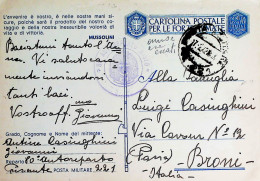 L'avvenire è vostro, è nelle vostre mani si-
curo, perchè sarà il prodotto del vostro co-
raggio e della vostra inesauribile volontà di
vita e di vittoria.
MUSSOLINI
CARTOLINA POSTALE
PER LE FORZE ARMATE
tanto
Vi saluto cara
mente inviandovi
tanti baci
Vostro aff.
Giovanni
Grado, Cognome e Nome del mittente:
Casinghini
Giovanni
Reparto 10° Autoreparto
POSTA MILITARE 221
Alla Famiglia
Luigi Casinghini
Via Cavour N° 12
(Pavia) Broni
Italia